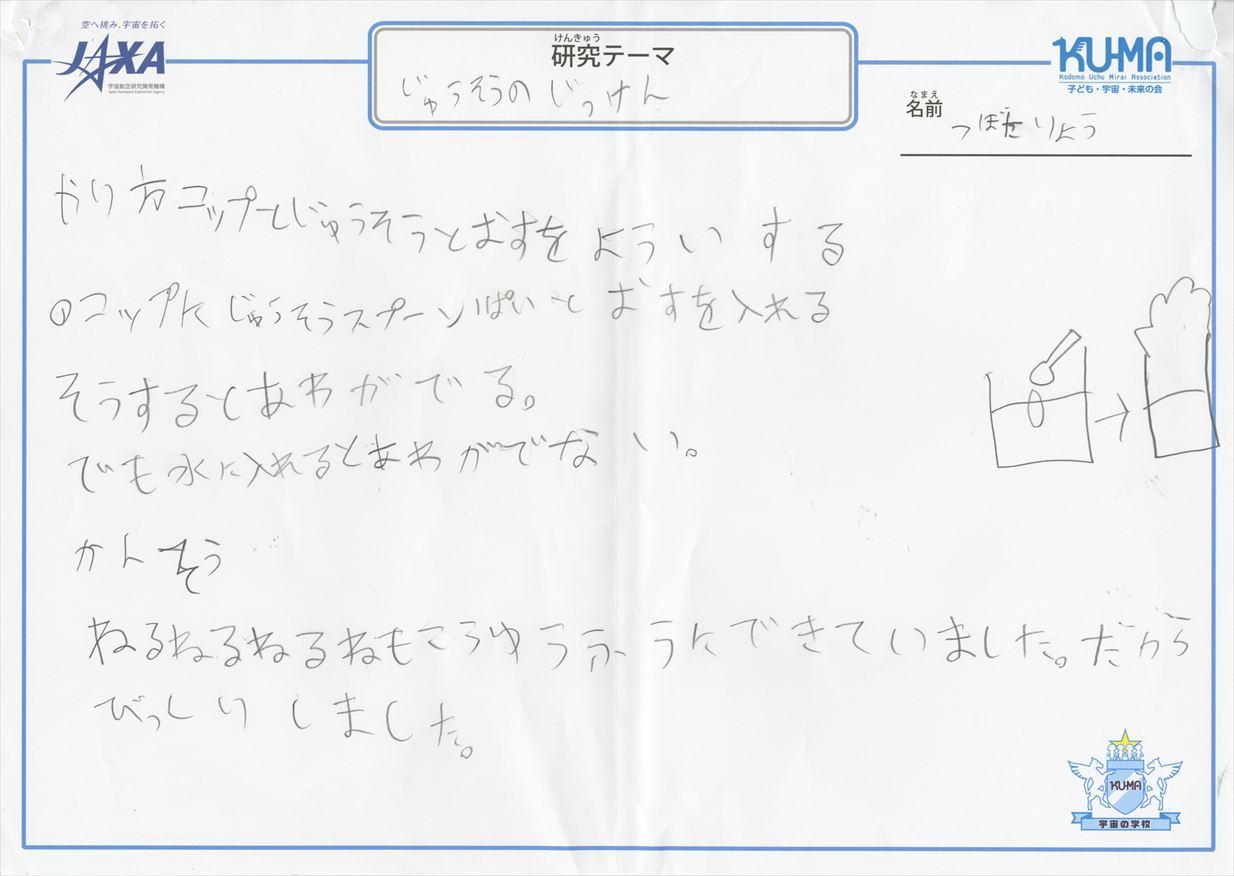 空へ挑み、宇宙を拓く
JAXA
宇宙航空研究開発機構
Japan Aerospace Exploration Agency
けんきゅう
研究テーマ
じゅうそうの じっけん
KU-MA
Kodomo Uchu Mirai Association
子ども・宇宙・未来の会
なまえ
名前
つぼた りょう
やり方 コップとじゅうそうとおすを よういする
①コップに じゅうそうスプーン1ぱいと おすを入れる
そうするとあわがでる。
でも水に入れるとあわがでない。
かんそう
ねるねるねるねもこうゆうふうにできていました。だから
びっしりしました。
KU-MA
宇宙の学校